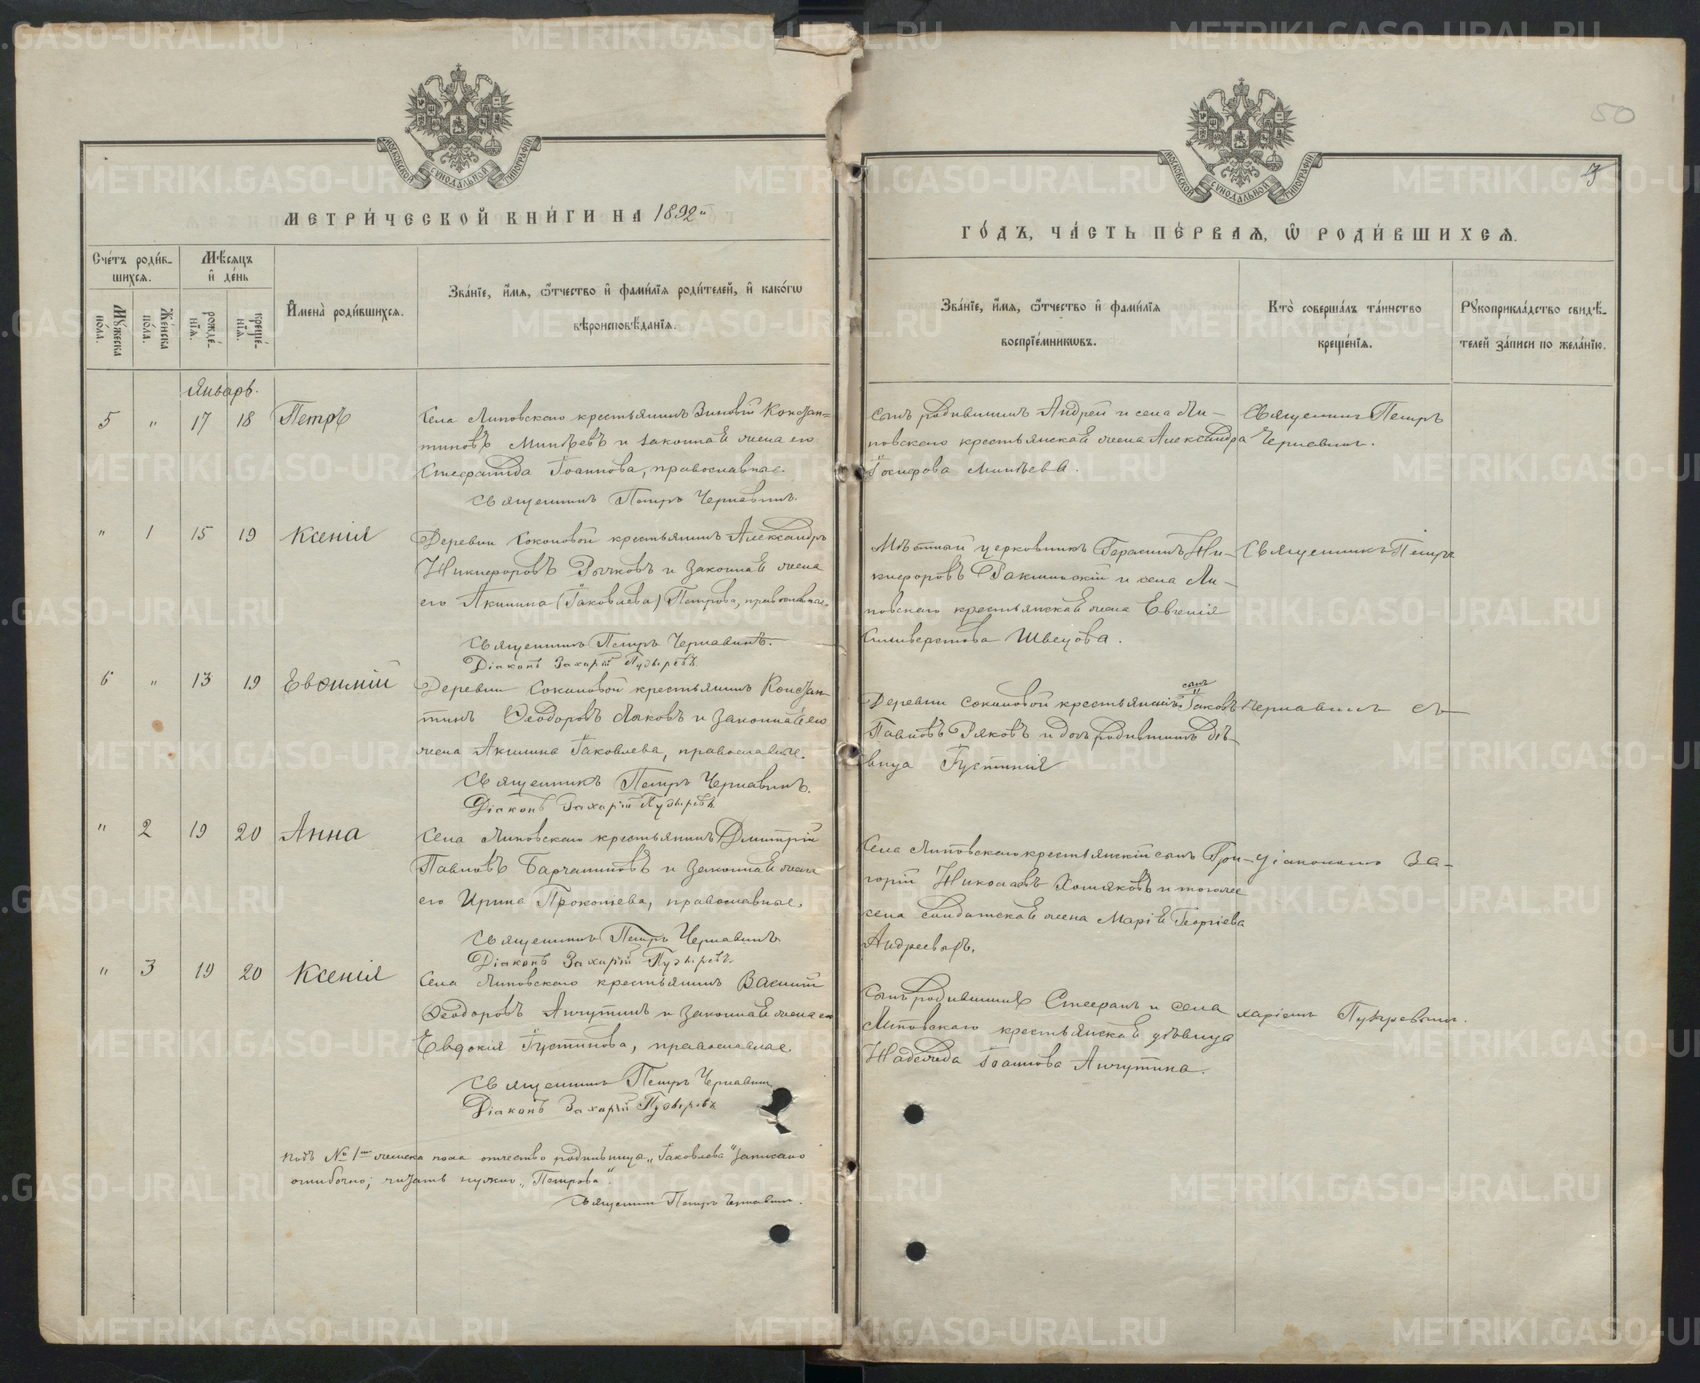 МЕТРИ́ЧЕСКОЙ КНИ́ГИ НА 1892"
Сче́тъ роди́в-
шихся.
Мѣсяцъ
и҆ де́нь
Мꙋ́жеска
по́ла.
Же́нска
по́ла.
рожде́-
нїя.
креще́-
нїя.
И҆мена̀ роди́вшихся.
Зва́нїе, и҆́мя, ѻ҆́тчество и҆ фами́лїя роди́телей, и҆ како́гѡ
вѣроисповѣ́данїя.
Январь.
5 " 17 18 Петръ
Села Липовскаго крестьянинъ Зиновій Констан=
тиновъ Минѣевъ и законная жена его
Стефанида Іоаннова, православные.
Священникъ Петръ Чернавинъ.
" 1 15 19 Ксенія
Деревни Соколовой крестьянинъ Александръ
Никифоровъ Рычковъ и законная жена
его Акилина (Іаковлева) Петрова, православные.
Священникъ Петръ Чернавинъ.
Діаконъ Захарій Пузыревъ.
6 " 13 19 Евѳимій
Деревни Соколовой крестьянинъ Констан-
тинъ Ѳеодоровъ и законная его
жена Акилина Іаковлева, православные.
Священникъ Петръ Чернавинъ.
Діаконъ Захарій Пузыревъ
" 2 19 20 Анна
Села Липовскаго крестьянинъ Димитрій
Павловъ и законная жена
его Ирина Прокопьева, православные.
Священникъ Петръ Чернавинъ
Діаконъ Захарій Пузыревъ.
" 3 19 20 Ксенія
Села Липовскаго крестьянинъ Василій
Ѳеодоровъ Анчутинъ и законная жена его
Евдокія Іустинова, православные.
Священникъ Петръ Чернавинъ
Діаконъ Захарій Пузыревъ
Подъ № 1мъ женска пола отчество родильницы „Іаковлева" записано
ошибочно; читать нужно „Петрова".
Священникъ Петръ Чернавинъ.
50
ГО́ДЪ, ЧА́СТЬ ПЕ́РВАЯ, Ѡ҆ РОДИ́ВШИХСЯ.
Зва́нїе, и҆́мя, ѻ҆́тчество и҆ фами́лїя
воспрїе́мникѡвъ.
Кто̀ соверша́лъ та́инство
креще́нїя.
Рꙋкоприкла́дство свидѣ́-
телей за́писи по жела́нїю.
сынъ родившихъ Андрей и села Ли-
повскаго крестьянская жена Александра
Іосифова Минѣева.
Священникъ Петръ
Чернавинъ.
Мѣстный церковникъ Герасимъ Ни-
кифоровъ и села Ли-
повскаго крестьянская жена Евгенія
Сильверстова Швецова.
Священникъ Петръ
Деревни Соколовой крестьянскій сынъ Іаковъ
Павловъ и дочь родившихъ дѣ-
вица Іустинія
Чернавинъ съ
Села Липовскаго крестьянскій сынъ Гри-
горій Николаевъ Хомяковъ и тогоже
села солдатская жена Марія Георгіева
Андреева.
діакономъ За-
Сынъ родившихъ Стефанъ и села
Липовскаго крестьянская дѣвица
Надежда Іоаннова Анчутина.
харіемъ Пузыревымъ.
МОСКОВСКОЙ СѴНОДАЛЬНОЙ ТИПОГРАФІИ
МОСКОВСКОЙ СѴНОДАЛЬНОЙ ТИПОГРАФІИ
METRIKI.GASO-URAL.RU